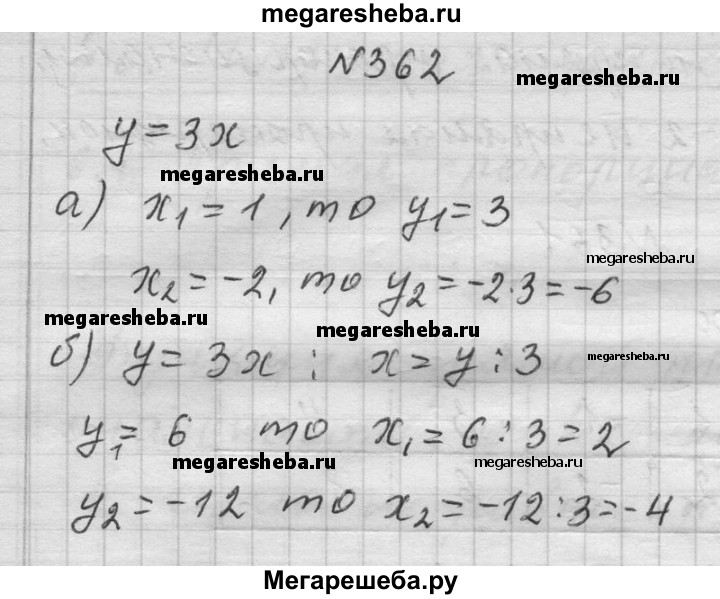 megaresheba.ru
№362
megaresheba.ru
y = 3x
megaresheba.ru
а) x₁ = 1, то y₁ = 3
megaresheba.ru
x₂ = -2, то y₂ = -2·3 = -6
megaresheba.ru
megaresheba.ru
б) y = 3x ; x = y : 3
megaresheba.ru
y₁ = 6 то x₁ = 6 : 3 = 2
megaresheba.ru
megaresheba.ru
y₂ = -12 то x₂ = -12 : 3 = -4
Мегарешеба.ру